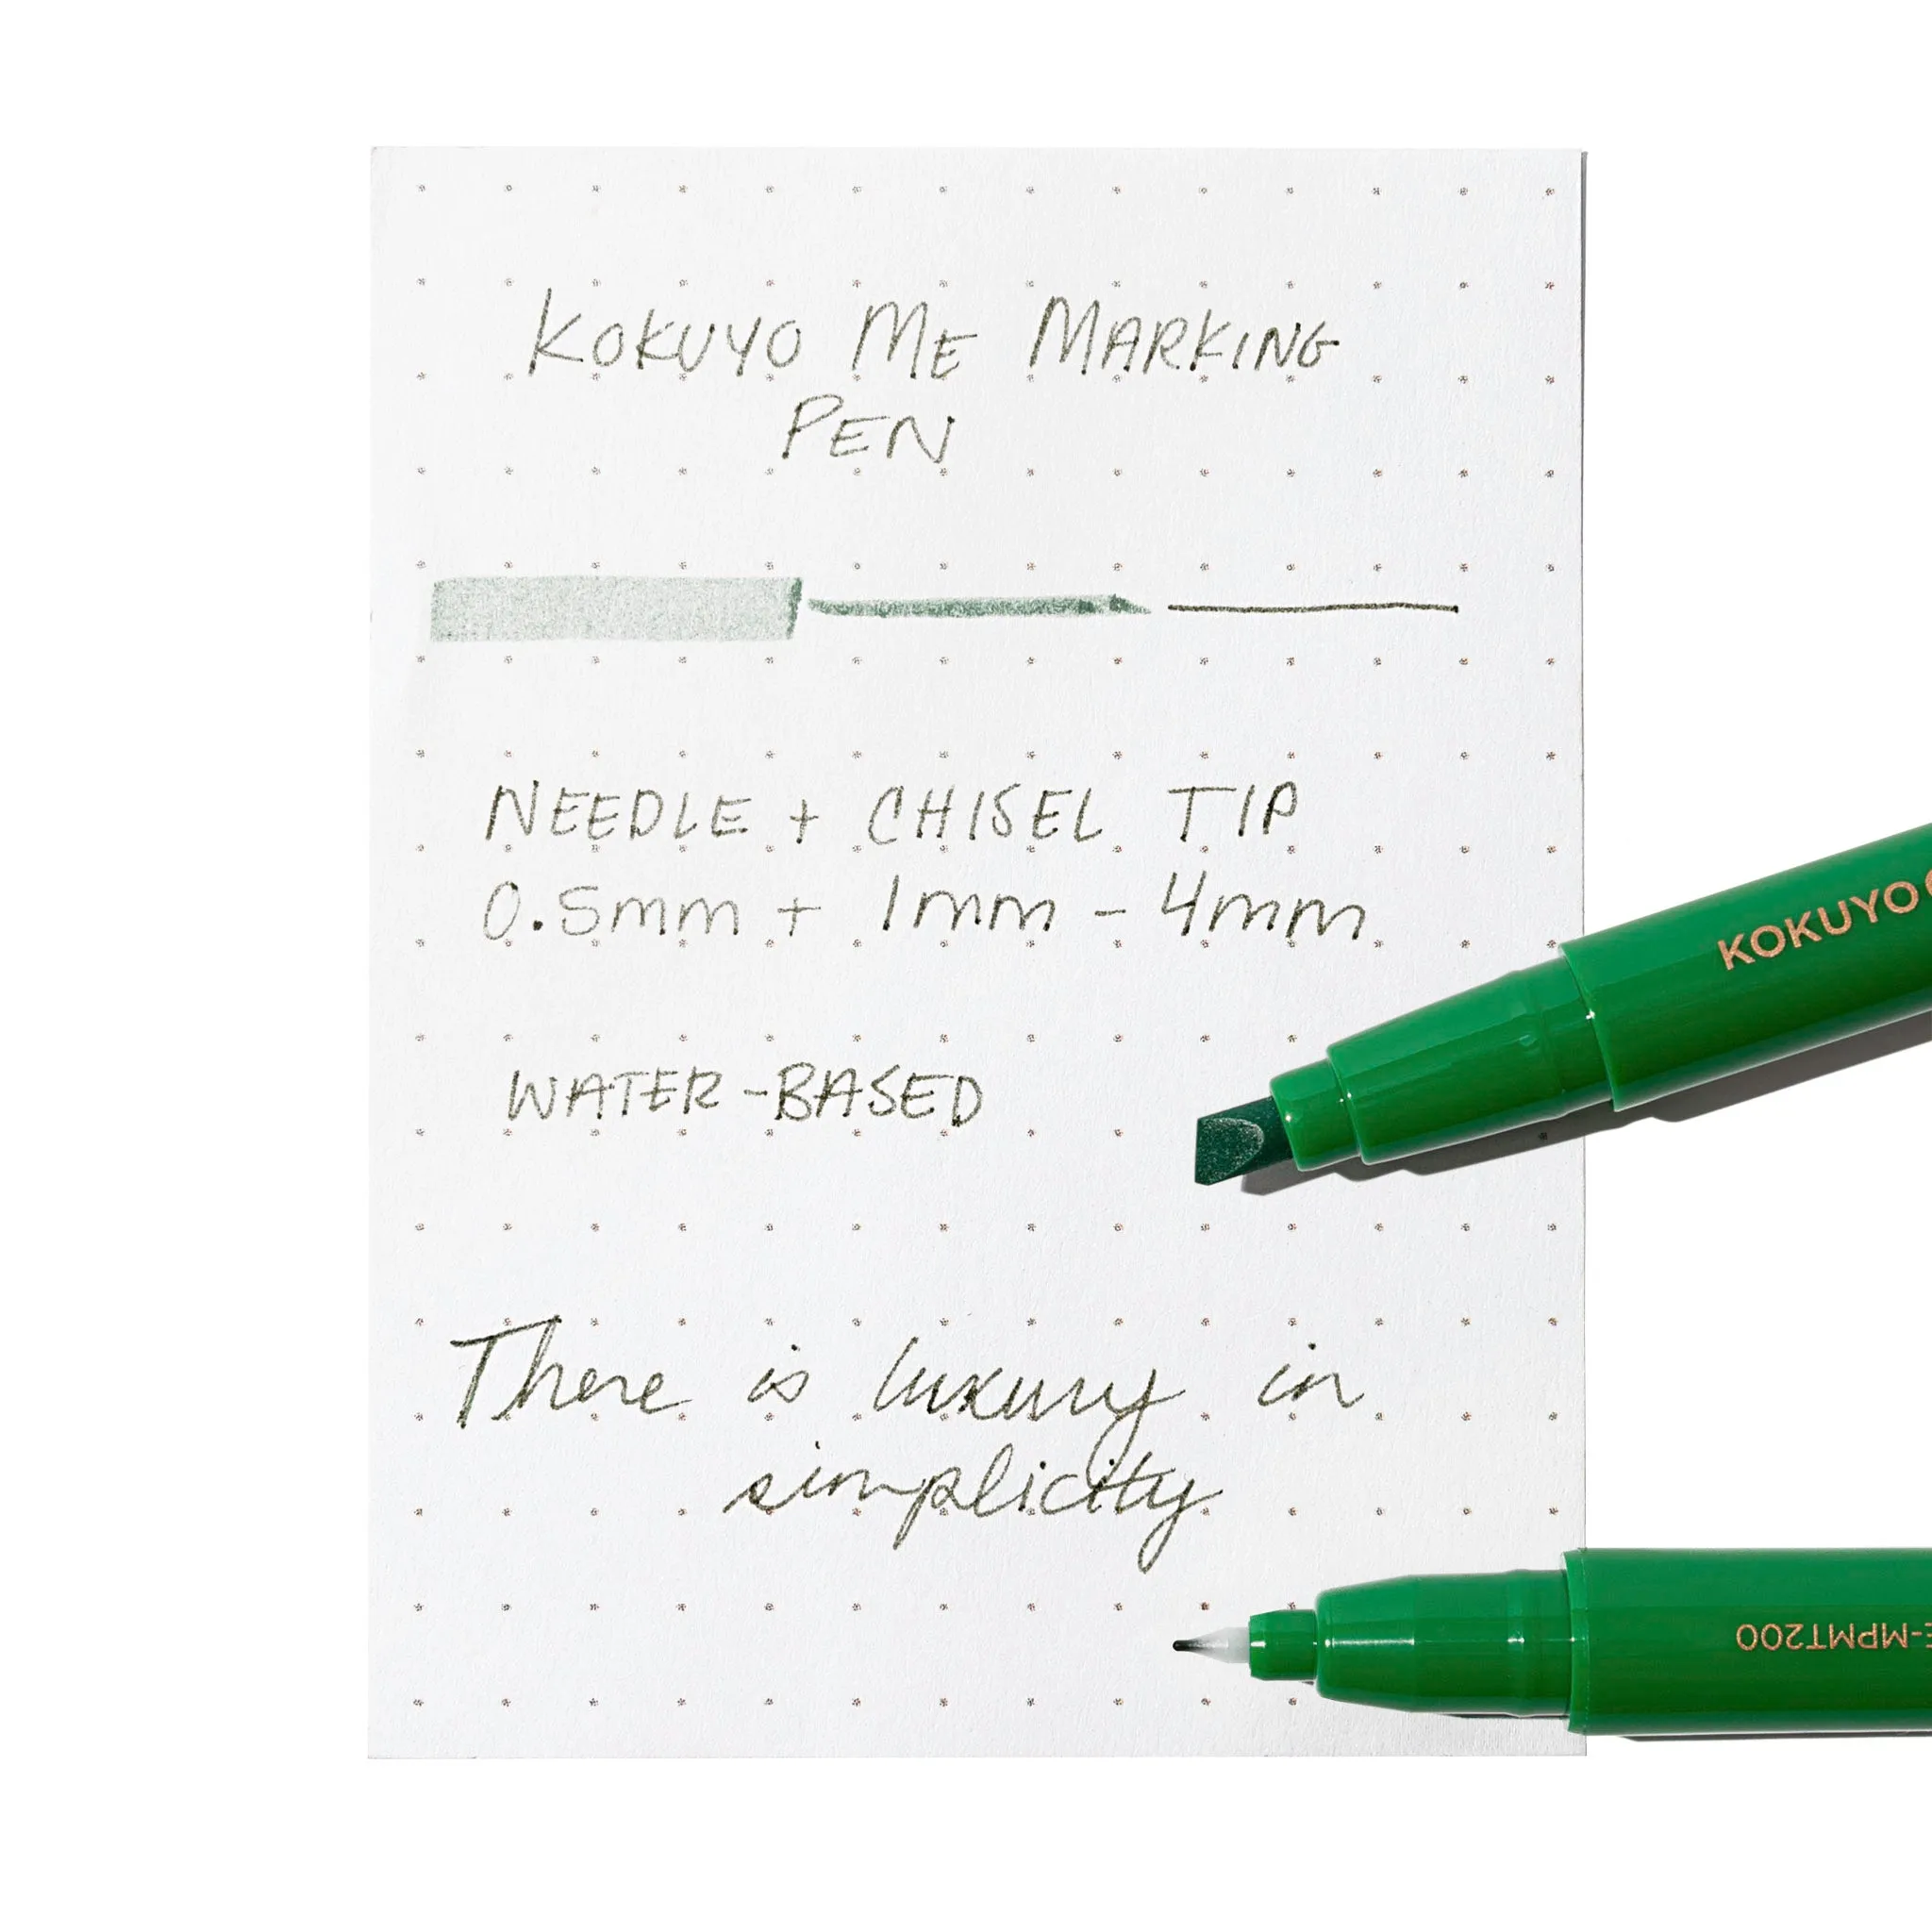 KOKUYO ME MARKING
PEN
NEEDLE + CHISEL TIP
0.5mm + 1mm - 4mm
WATER-BASED
KOKUYO
There is luxury in
simplicity
E-MPMT200